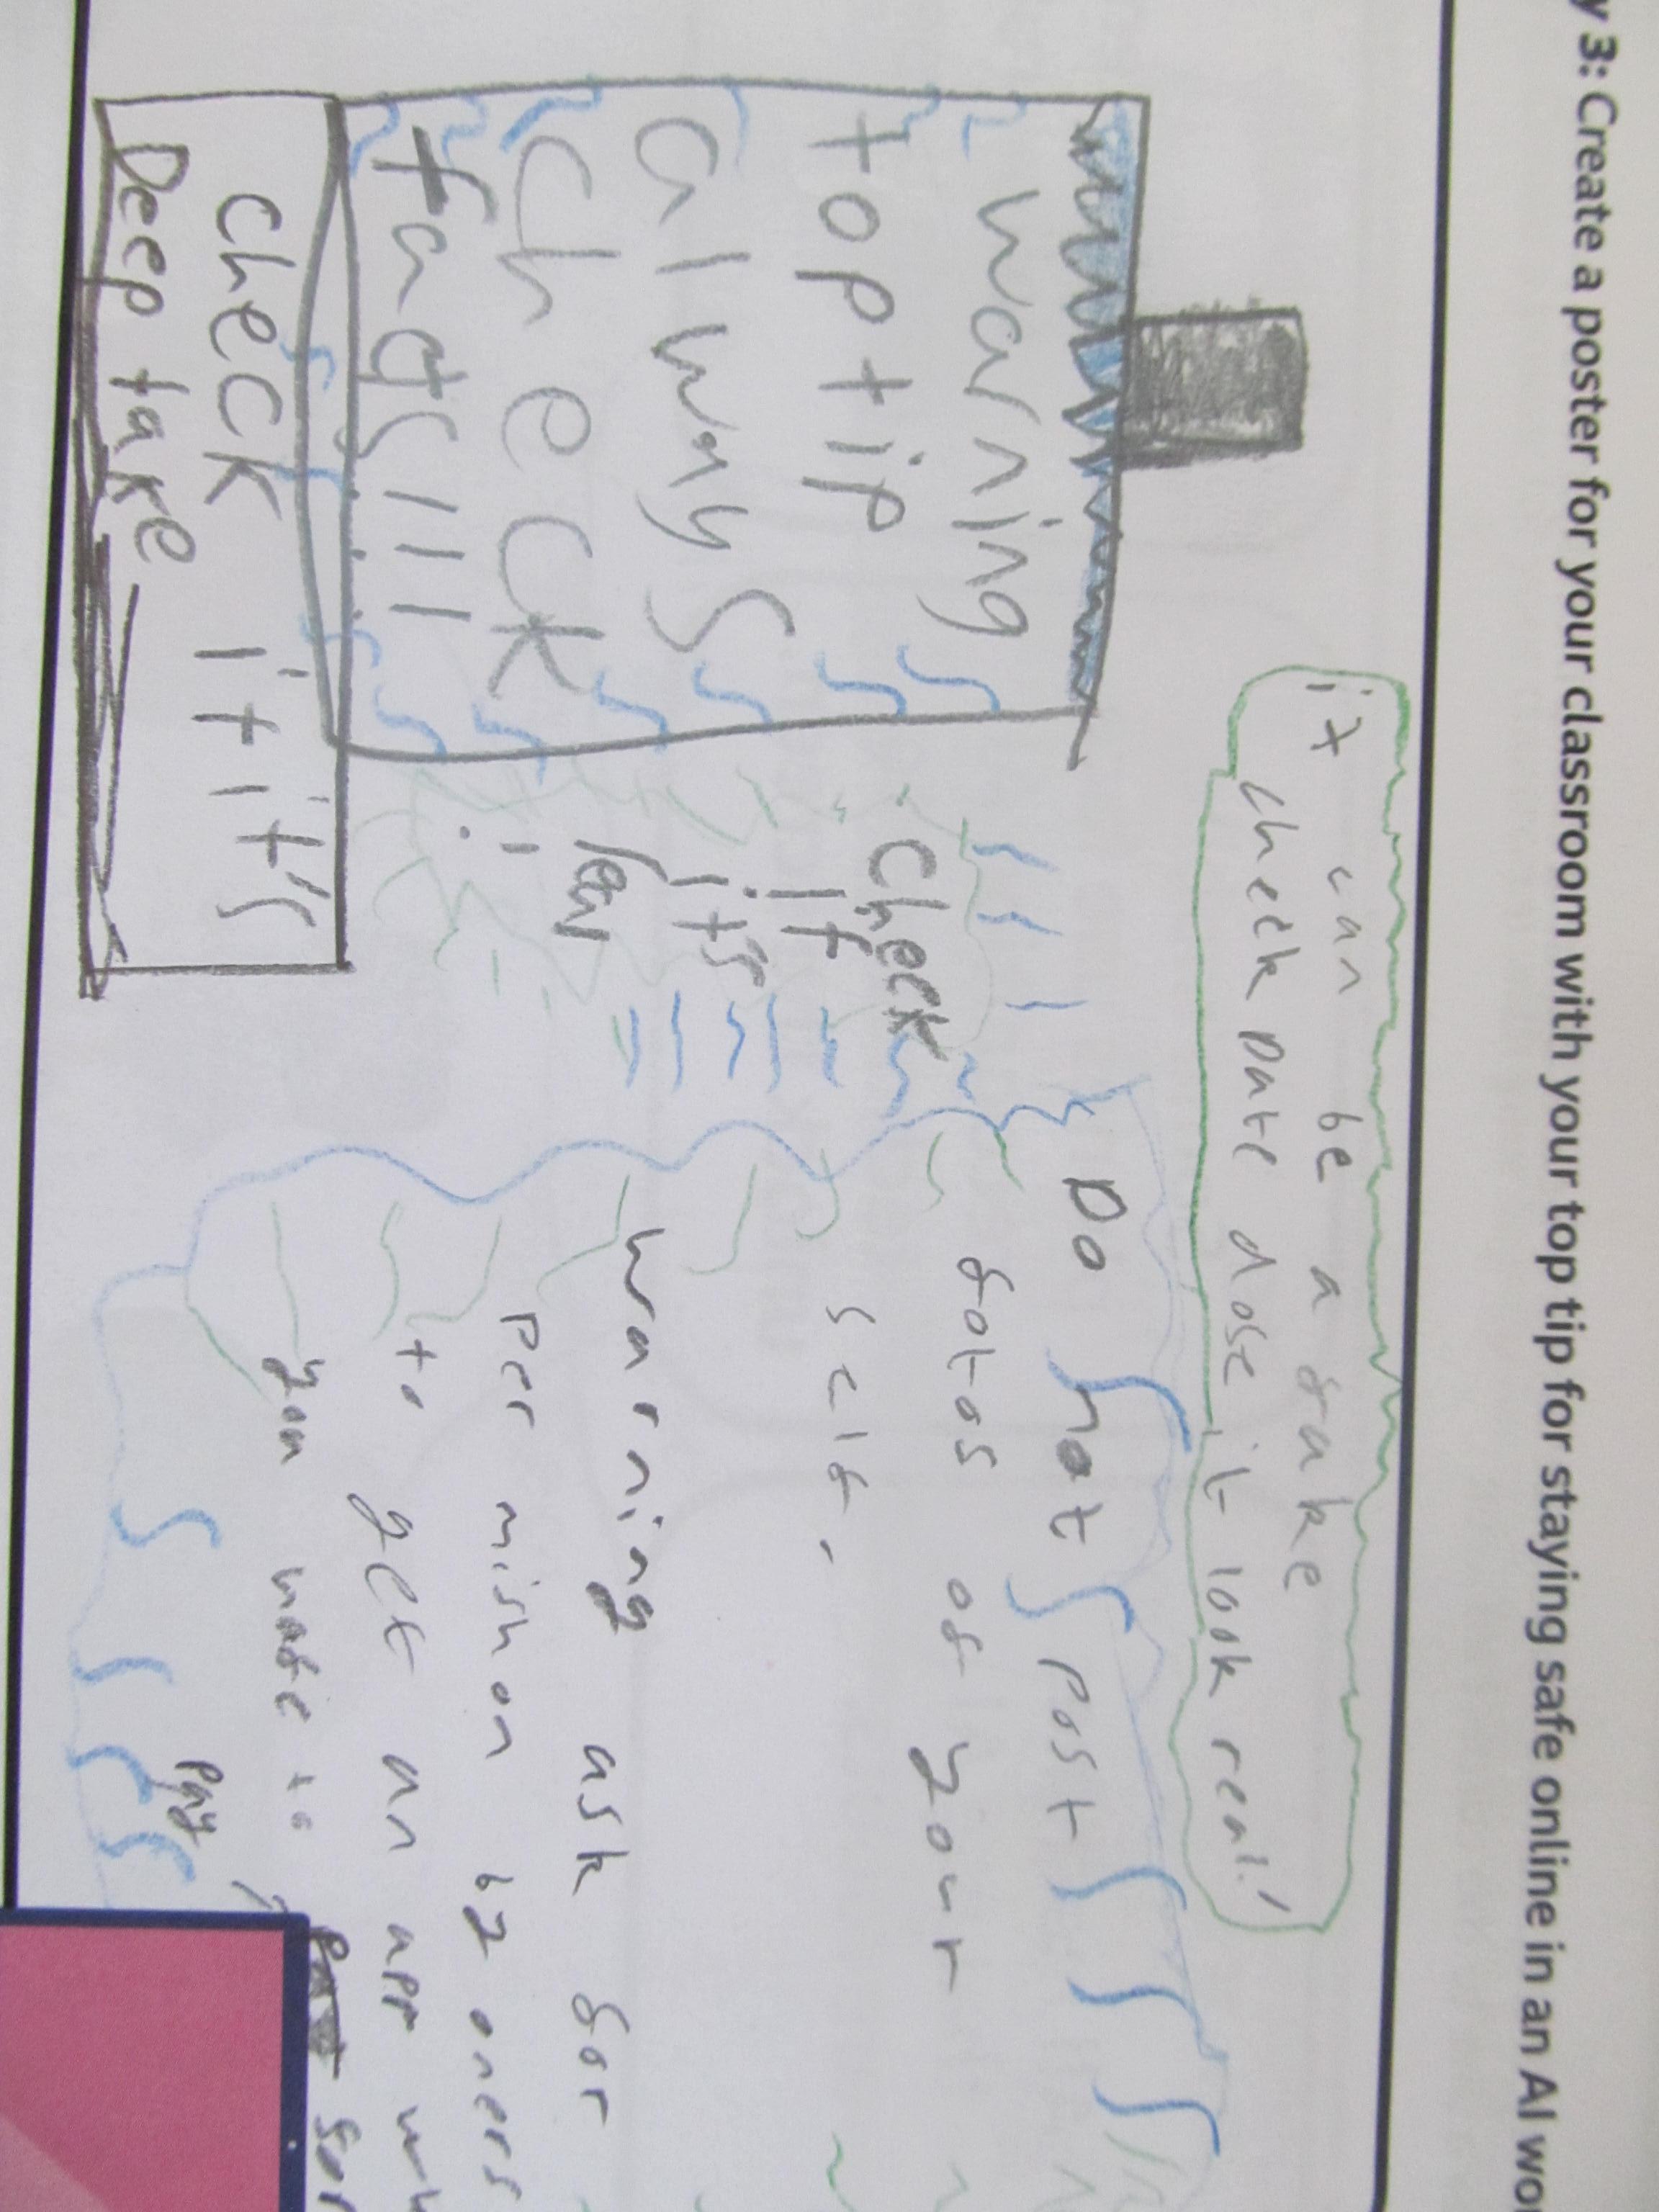 y 3: Create a poster for your classroom with your top tip for staying safe online in an AI wor
it can be a fake
check Date dose it look real!
warning
top tip
always
check
facts!!!
check it it's
Deep take
check
if
it's
Do not post
fotos of your
self.
warning ask for
per mishon by oners
to get an app wh
you hafe to
Pay for